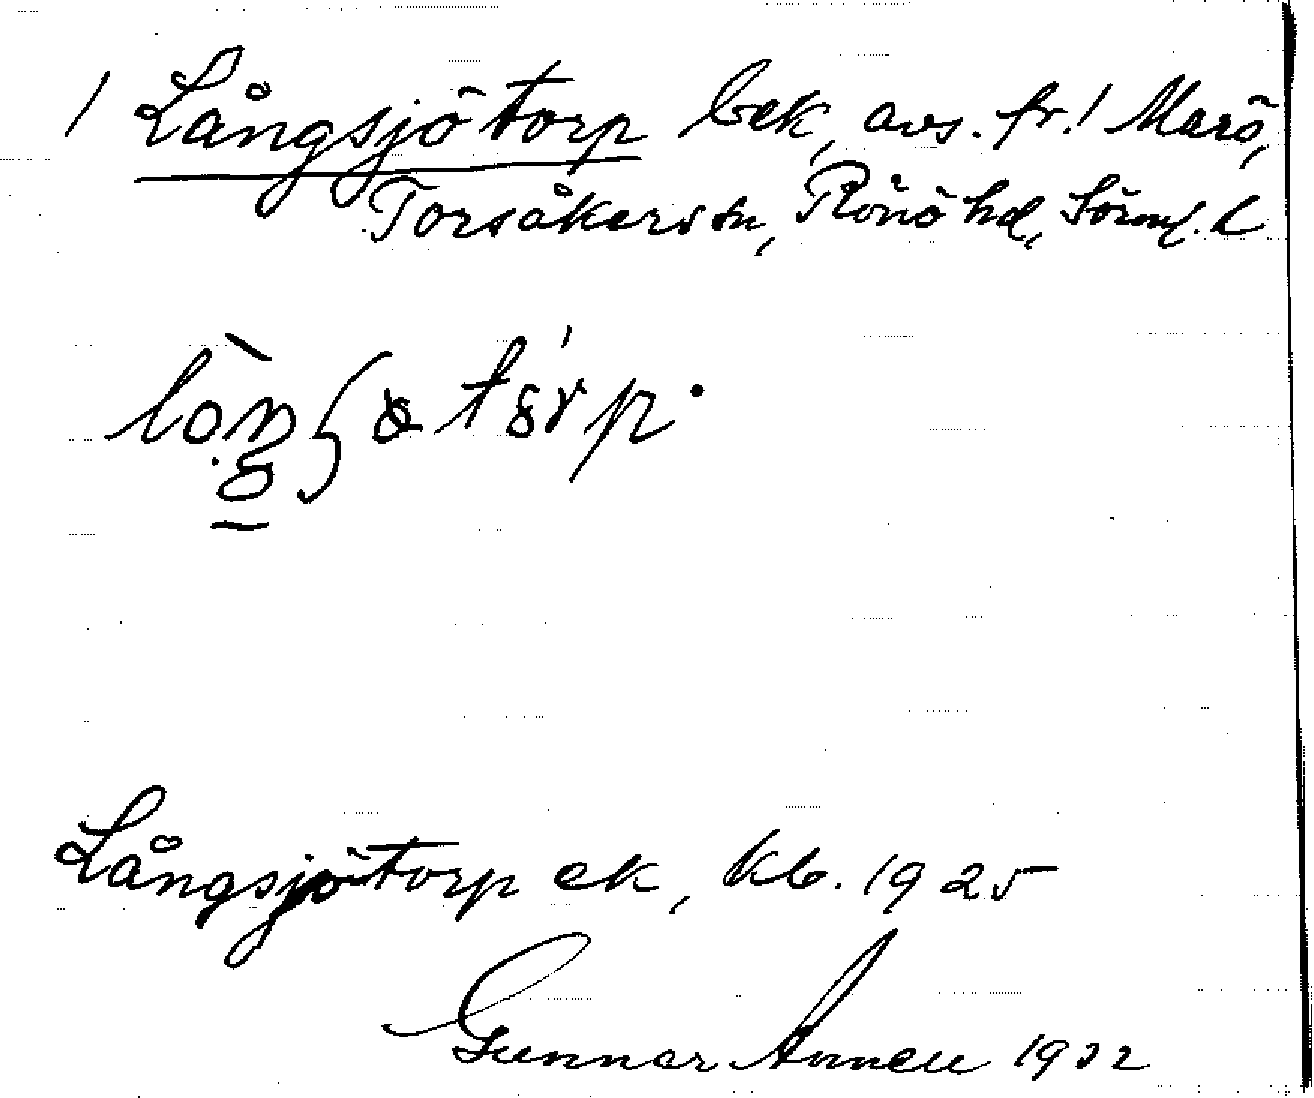 1 Långsjötorp bek, avs. fr. 1 Marö,
Torsåkers sn, Rönö hd, Sörml. l
Långsjötorp ek, kb. 1925
Gunnar Annell 1932